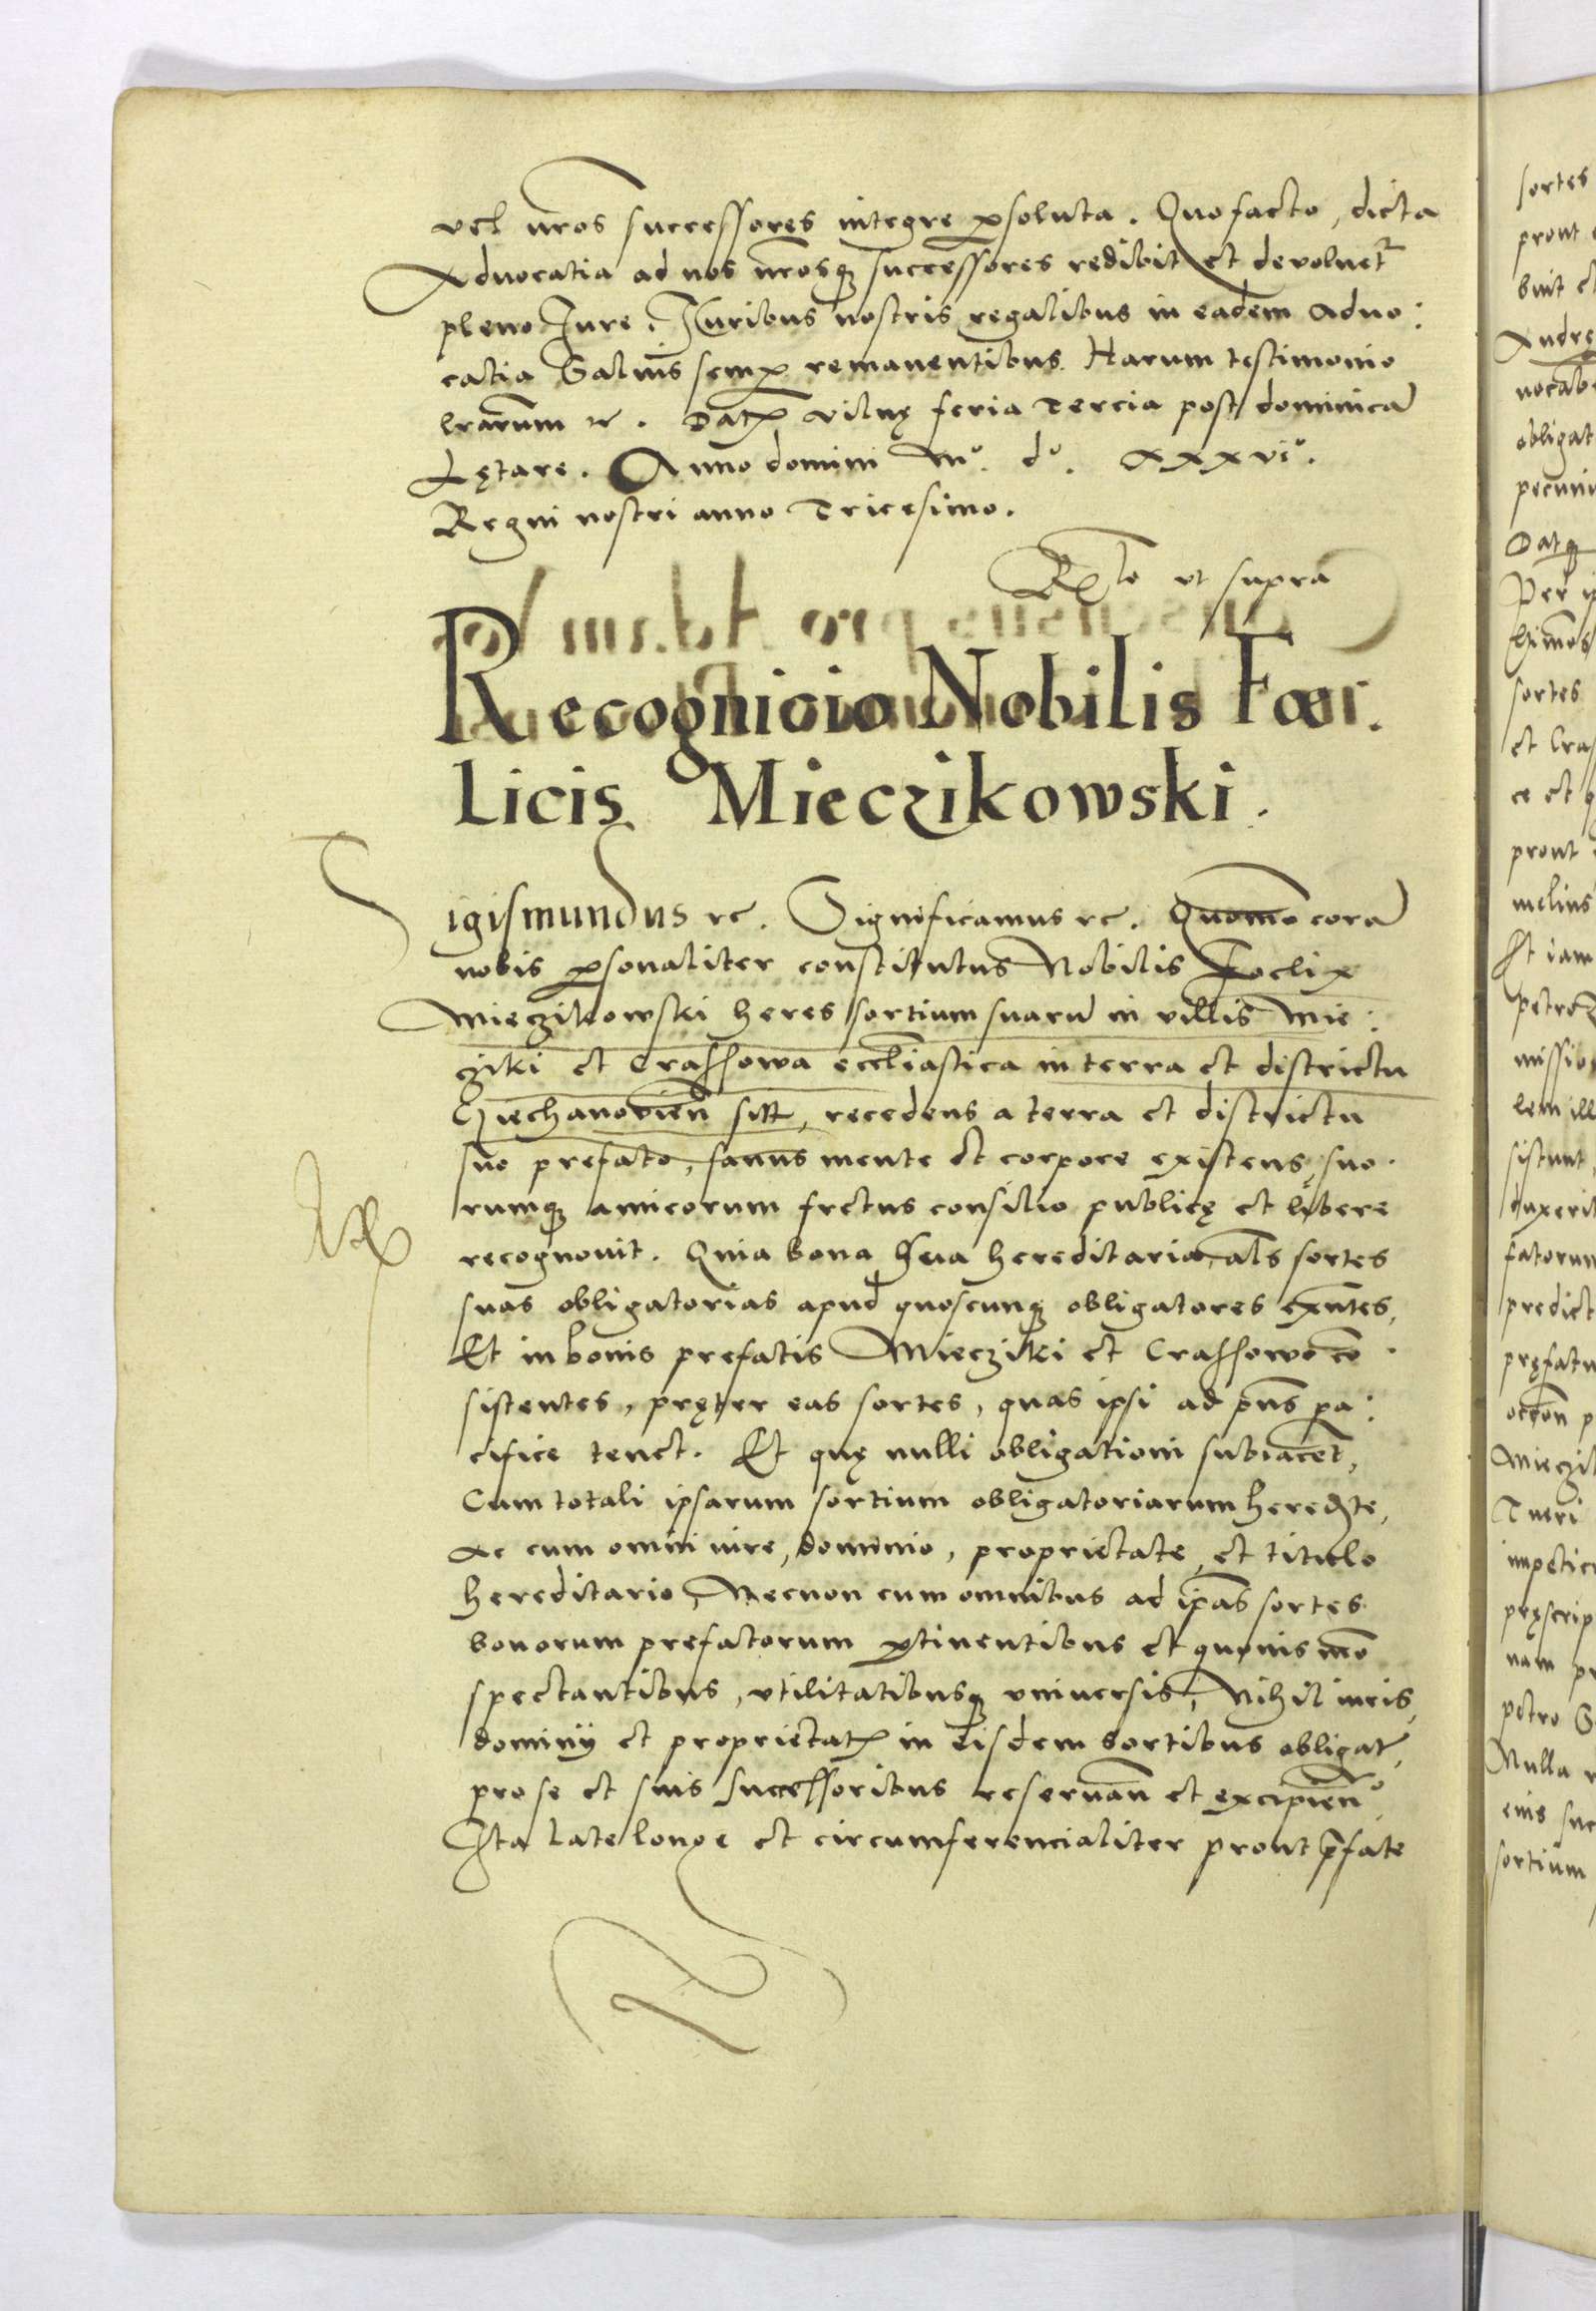 vel nr̄os successores integre ꝑsoluta. Quo facto, dicta
Aduocatia ad nos nr̄osqꝫ successores redibit et deuoluet᷑
pleno Iure. Iuribus nostris regalibus in eadem aduo:
catia Saluis semꝑ remanentibus. Harum testimonio
lrarum ꝛc. Datꝭ Vilnę feria Tercia post dominicā
Lętare. Anno domini Mͦ. dͦ. xxxviͦ.
Regni nostri anno Tricesimo.
Rᷓlo vt supra
Recognicio Nobilis Fœ.
Licis Mieczikowski.
Sigismundus ꝛc. Significamus ꝛc. Quomō corā
nobis ꝑsonaliter constitutus Nobilis Foelix
Mieczikowski heres sortium suarū in villis Mie:
cziki et Crassowa eccl̄iastica in terra et districtu
Cziechanouień sitꝭ, recedens a terra et districtu
suo prefato, sanus mente et corpore existens, suo.
rumqꝫ amicorum fretus consilio publicę et libere
recognouit. Quia bona sua hereditaria, als sortes
suas obligatorias apud quoscunqꝫ obligatores exn̄tes,
Et in bonis prefatis Miecziki et Crassowo cō.
sistentes, pręter eas sortes, quas ipsi ad pn̄s pa:
cifice tenet. Et quę nulli obligationi subiacēt,
Cum totali ipsarum sortium obligatoriarum heredꝭte,
Ac cum omni iure, dominio, proprietate et titulo
hereditario, Necnon cum omnibus ad ip̄as sortes
bonorum prefatorum ꝑtinentibus et quouis mō
spectantibus, vtilitatibusqꝫ vniuersis, Nihil iuris,
dominij et proprietatꝭ in eisdem sortibus obligat᷑,
pro se et suis successoribus reseruań et excipień.
Ita late longe et circumferencialiter prout p̄fate